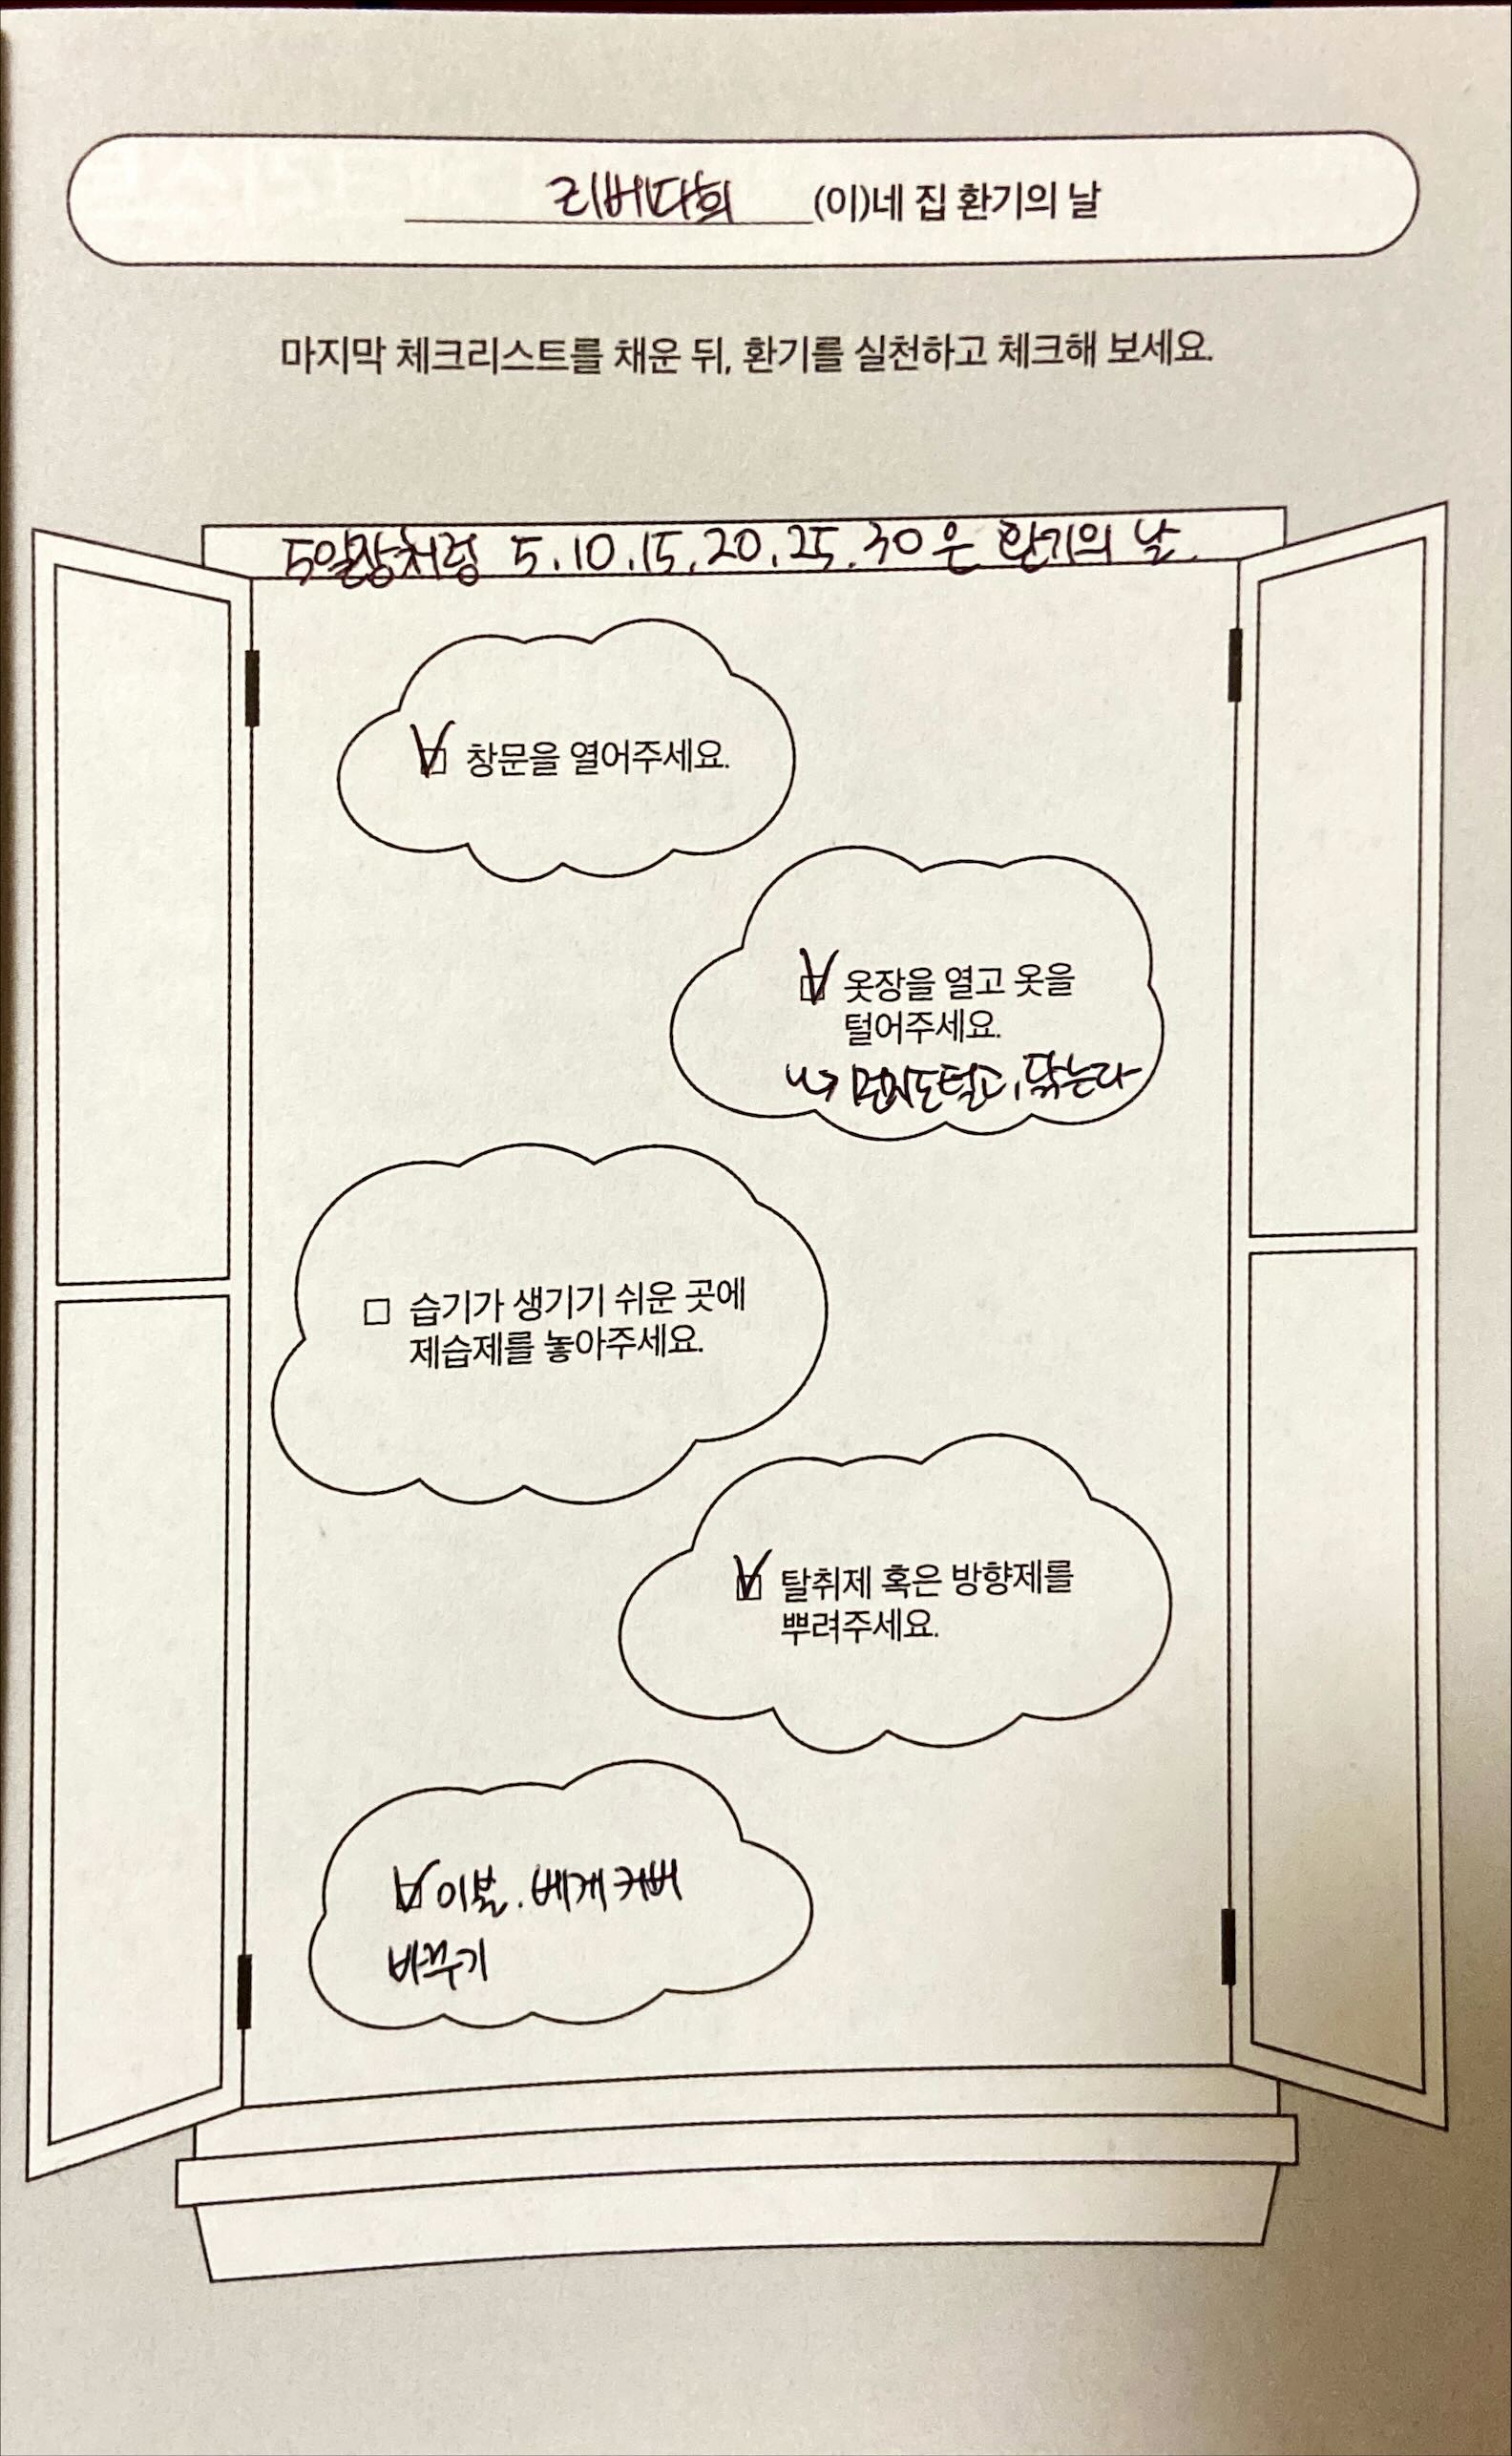 리버다희 (이)네 집 환기의 날
마지막 체크리스트를 채운 뒤, 환기를 실천하고 체크해 보세요.
5일장처럼 5.10.15.20.25.30은 환기의 날.
창문을 열어주세요.
옷장을 열고 옷을
털어주세요.
↳ 먼지도털고, 닦는다
습기가 생기기 쉬운 곳에
제습제를 놓아주세요.
탈취제 혹은 방향제를
뿌려주세요.
이불. 베게 커버
바꾸기